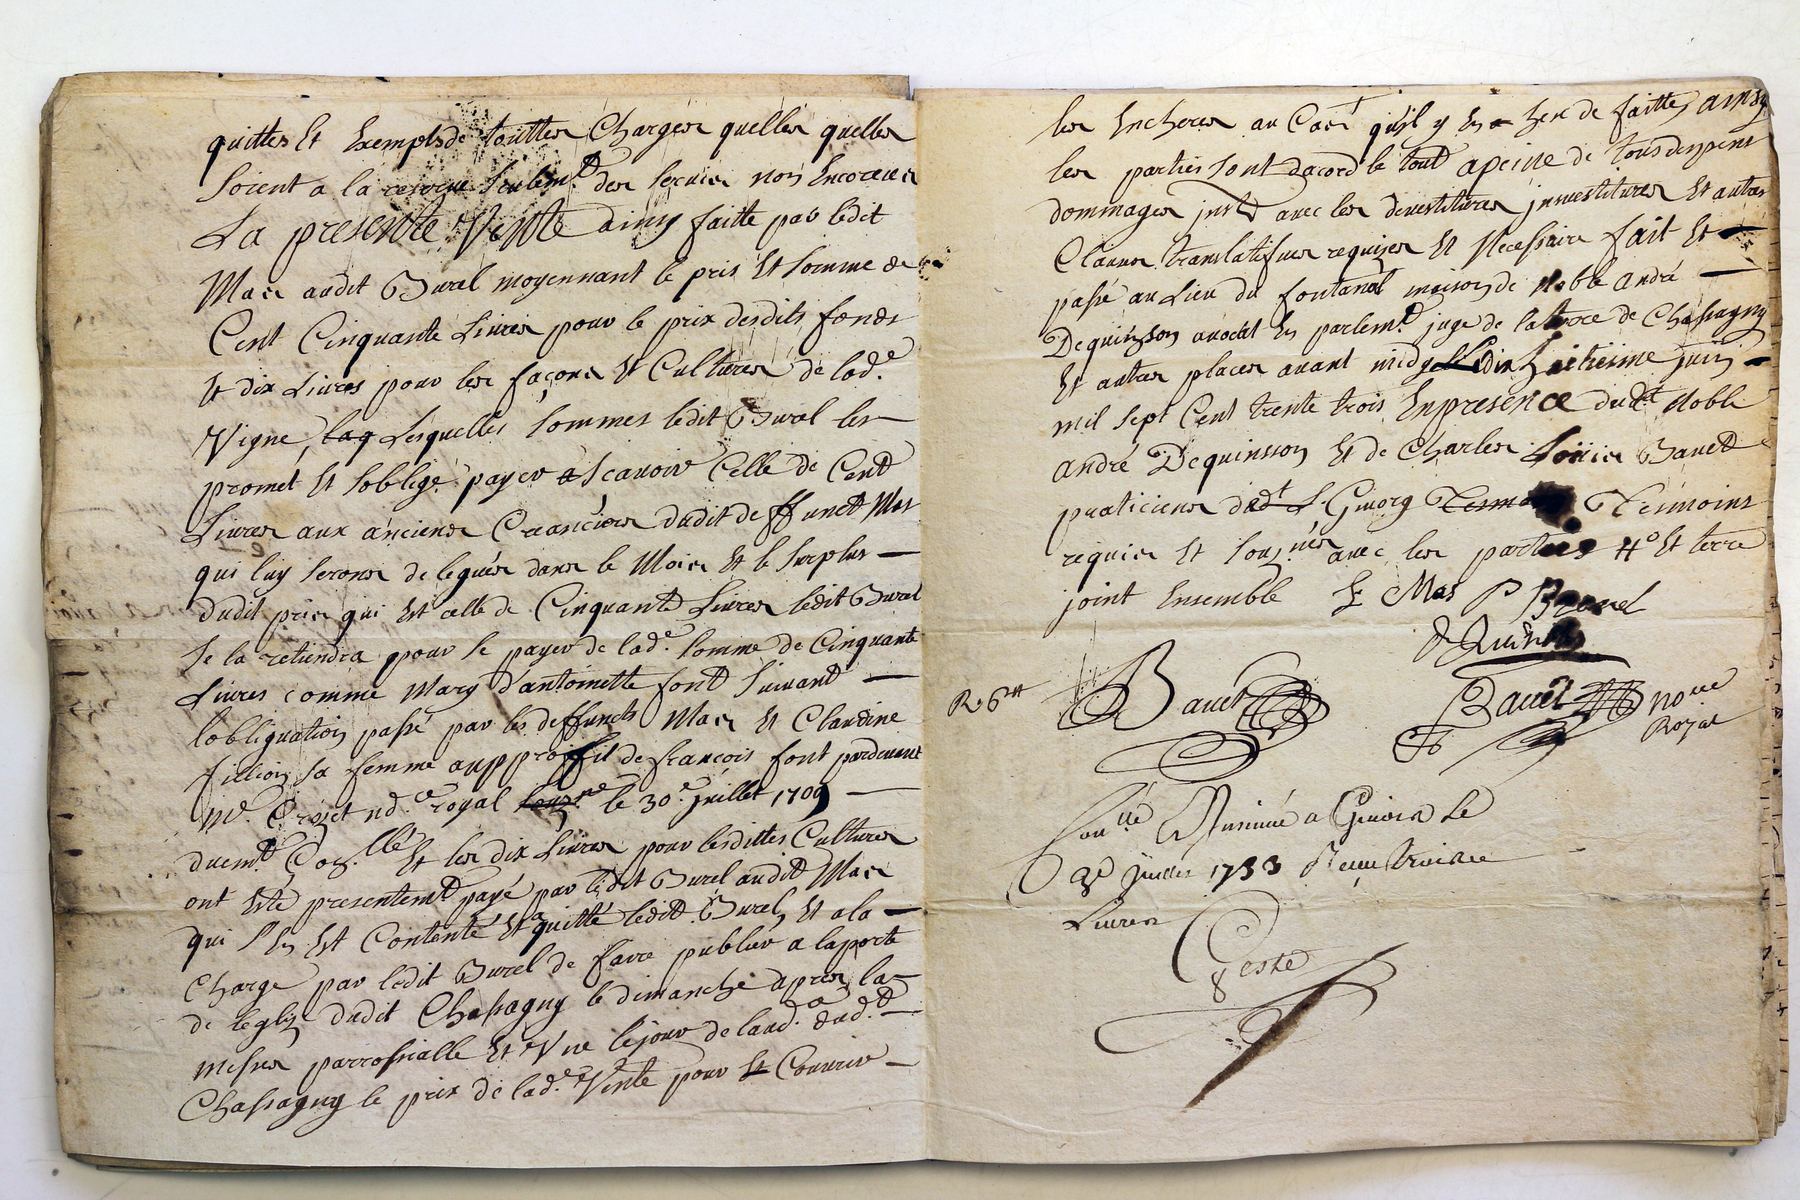 quittes Et Exempts de touttes Charges quelles quelles
soient a la reserve seulemt. des servis non Encoreus
La presente Vente ainsy faitte par ledit
Mas audit Burel moyennant le pris Et somme de
Cent Cinquante Livres pour le prix desdits fonds
Et dix Livres pour les façons Et Cultures de lade.
Vigne, Lesquelles sommes ledit Burel
promet Et soblige payer Scavoir Celle de Cent
Livres aux anciens Creanciers dudit deffunct Mas
qui luy serons delegués dans le Mois Et le surplus
dudit pris qui Est celle de Cinquante Livres ledit Burel
se la retiendra pour se payer de lade. somme de Cinquante
Livres comme mary d'antoinette font suivant
lobliguation passé par les deffuncts Mas Et Claudine
fillion sa femme aupproffit de françois font pardevant
Me. royal le 30e. juillet 1709
duemt. Et les dix Livres pour lesdittes Cultures
ont Esté presentemt payé par ledit Burel audit Mas
qui s'En Est Contenté Et a quitté ledit Burel, Et a la
Charge par ledit Burel de faire publier a laporte
de leglize dudit Chassagny le dimanche apres la
messes parrossialle Et
Chassagny le prix de lade. Vente pour Couvrir
les Encheres au Cast qu'il y En a Eeu de faittes ainsy
les parties sont dacord le tout apeine de tous despens
dommages avec les devestitures jnvestitures Et autres
Clauses translatifves requises Et Necessaire fait Et
passé au Lieu du fontanat maison de Noble andré
Dequinson avocat En parlemt. juge de laterre de Chassagny
Et autres places avant midy dix huitieme juin
mil sept Cent trente trois En presence dudt Noble
andré Dequinsson Et de Charles Loüis Bauet
praticiens Givors Temoins
requis Et sousnés avec les parties Et terre
joint Ensemble Mas P Burel
DQuinson
R. 6tt Bauet Bauet Nore
Royal
Conllé a Givors Le
juillet 1733
Livres
Geste